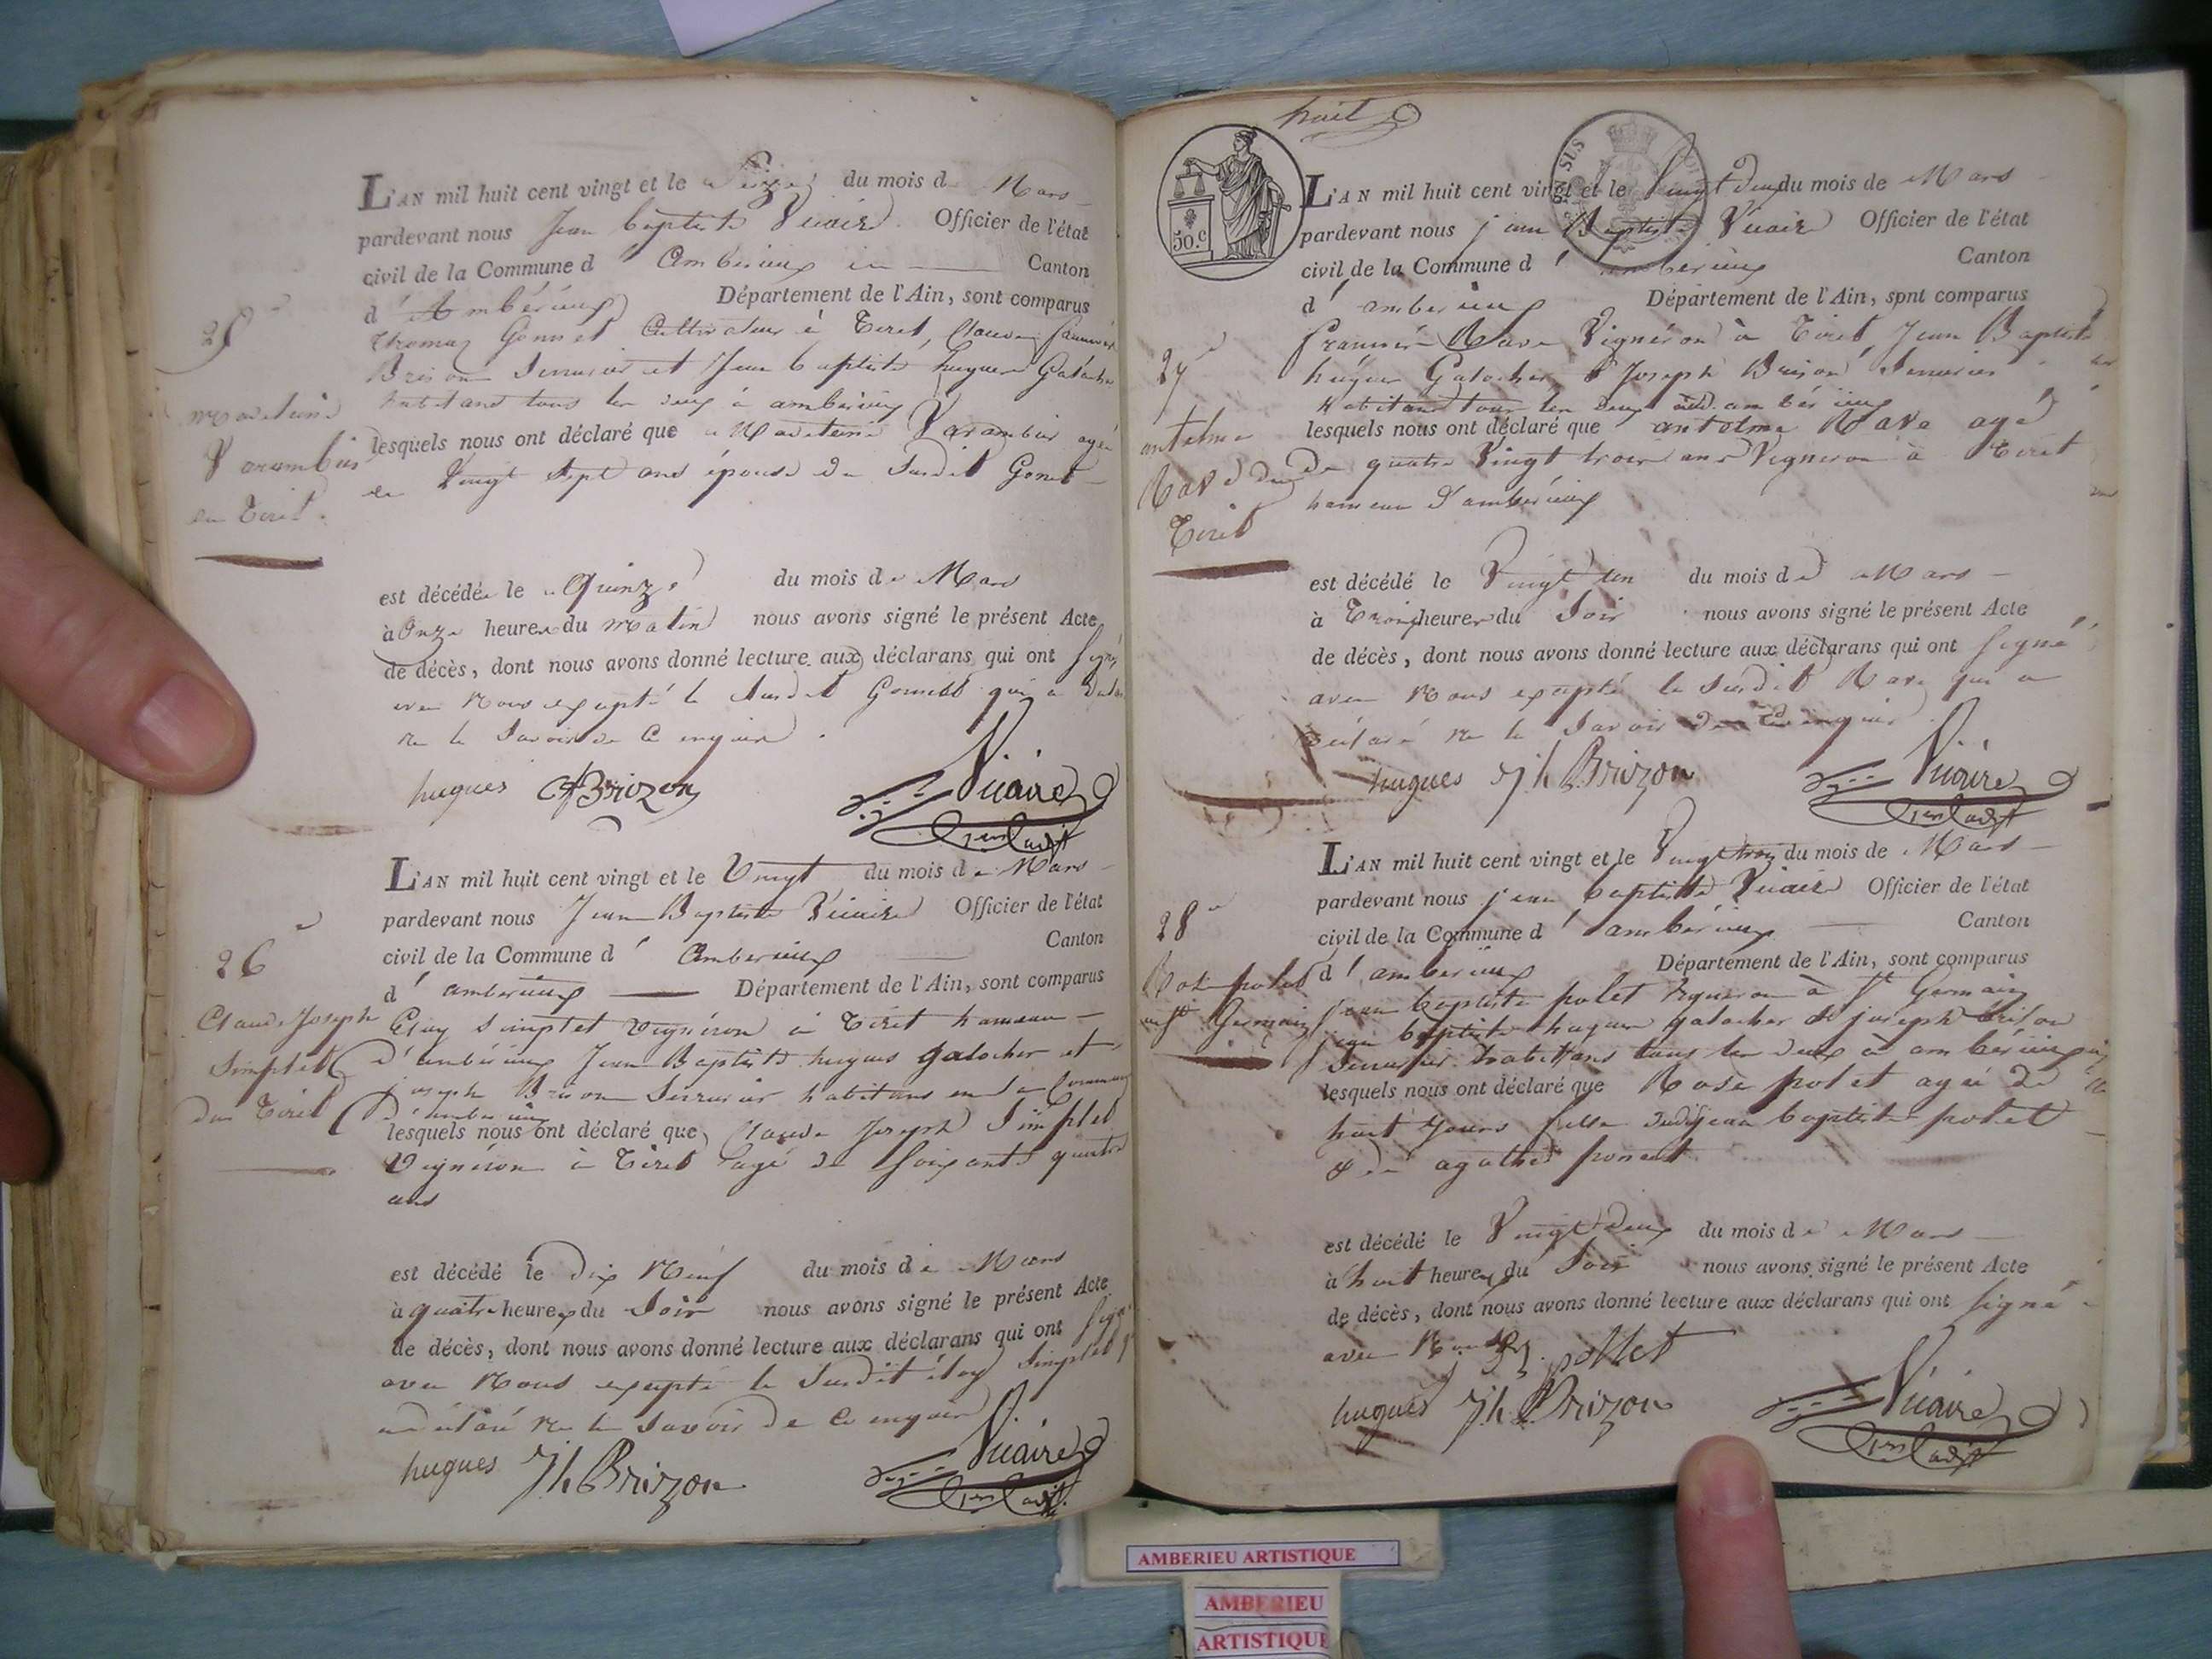 L'AN mil huit cent vingt et le Seize du mois de Mars
pardevant nous Jean baptiste Vicaire Officier de l'état
civil de la Commune d' Amberieux en Canton
d' Ambérieux Département de l'Ain, sont comparus
25e
Thomas Gonnet Cultivateur à Tiret, Claude
Brison Serrurier et Jean baptiste hugues Galocher
habitans tous les deux à amberieux
madelaine
Varambier
de Tiret.
lesquels nous ont déclaré que Madelaine Varambier agée
de Vingt Sept ans épouse du Susdit Gonet
est décédée le Quinze du mois de Mars
à Onze heures du matin nous avons signé le présent Acte
de décès, dont nous avons donné lecture aux déclarans qui ont signé
avec Nous excepté le Susdit Gonnet qui a
ne le Savoir de Ce enquis
hugues Brizon Vicaire
L'AN mil huit cent vingt et le Vingt du mois de Mars
pardevant nous Jean Baptiste Vicaire Officier de l'état
civil de la Commune d' Amberieux Canton
d' amberieux Département de l'Ain, sont comparus
26e
Claude Joseph
Simplet
de Tiret
Eloy Simplet Vigneron à Tiret hameau
d'ambérieux Jean Baptiste hugues galocher et
joseph Brison Serrurier habitans en la Commune
d'amberieux
lesquels nous ont déclaré que Claude Joseph Simplet
Vigneron à Tiret agé de Soixante quatre
ans
est décédé le dix Neuf du mois de Mars
à quatre heures du Soir nous avons signé le présent Acte
de décès, dont nous avons donné lecture aux déclarans qui ont signé
avec Nous excepté le Susdit éloy Simplet
a déclaré ne le Savoir de Ce enquis
hugues Jh Brizon Vicaire
huit
50.c
L'AN mil huit cent vingt et le Vingt deux du mois de Mars
pardevant nous jean Baptiste Vicaire Officier de l'état
civil de la Commune d' amberieux Canton
d' amberieux Département de l'Ain, sont comparus
27e
antelme
Rave de
Tiret
Rave Vigneron à Tiret, Jean Baptiste
hugues Galocher & Joseph Brison Serrurier
habitans tous les deux amberieux
lesquels nous ont déclaré que antelme Rave agé
de quatre Vingt trois ans Vigneron à Tiret
hameau d'amberieux
est décédé le Vingt un du mois de Mars
à Trois heures du Soir nous avons signé le présent Acte
de décès, dont nous avons donné lecture aux déclarans qui ont signé
avec Nous excepté le Susdit Rave qui a
déclaré ne le Savoir de Ce enquis
hugues Jh Brizon Vicaire
L'AN mil huit cent vingt et le Vingt trois du mois de Mars
pardevant nous jean baptiste Vicaire Officier de l'état
civil de la Commune d' ambérieux Canton
d' amberieux Département de l'Ain, sont comparus
28e
Rose polet
St Germain
jean baptiste polet Vigneron à St Germain
jean baptiste hugues galocher & joseph brison
Serrurier habitans tous les deux à ambérieux
lesquels nous ont déclaré que Rose polet agée de
huit jours fille dudit jean baptiste polet
& de agathe poncet
est décédé le Vingt deux du mois de Mars
à huit heures du Soir nous avons signé le présent Acte
de décès, dont nous avons donné lecture aux déclarans qui ont signé
avec Nous pollet
hugues Jh Brizon Vicaire
AMBERIEU ARTISTIQUE
AMBERIEU
ARTISTIQUE